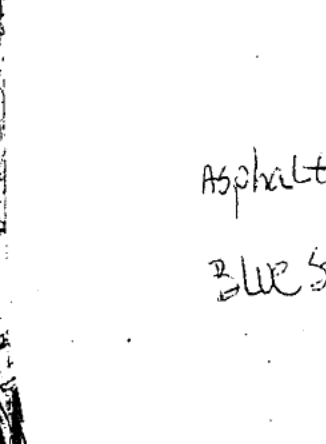 Asphalt
Blue S